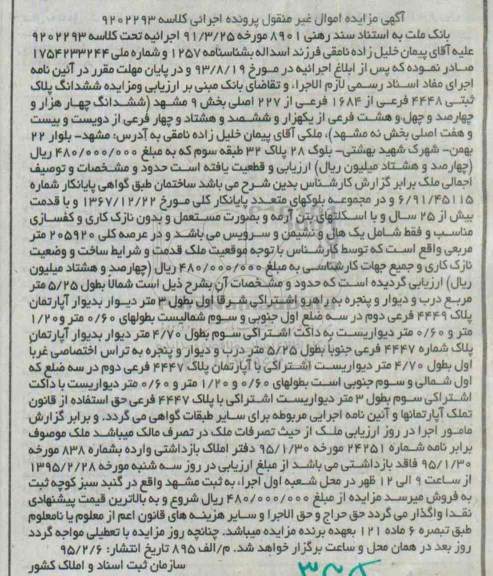 آگهی مزایده اموال غیر منقول پرونده اجرائی کلاسه ۹۲۰۲۲۹۳
بانک ملت به استناد سند رهنی ۸۹۰۱ مورخه ۹۱/۳/۲۵ اجرائیه تحت کلاسه ۹۲۰۲۲۹۳
علیه آقای پیمان خلیل زاده نامقی فرزند اسداله بشناسنامه ۱۲۵۷ و شماره ملی ۱۷۵۴۲۳۳۲۴۴
صادر نموده که پس از ابلاغ اجرائیه در مورخ ۹۳/۸/۱۹ و در پایان مهلت مقرر در آئین نامه
اجرای مفاد اسناد رسمی لازم الاجراء و تقاضای بانک مبنی بر ارزیابی ومزایده ششدانگ پلاک
ثبتی ۴۴۴۸ فرعی از ۱۶۸۴ فرعی از ۲۲۷ اصلی بخش ۹ مشهد (ششدانگ چهار هزار و
چهارصد و چهل و هشت فرعی از یکهزار و ششصد و هشتاد و چهار فرعی از دویست و بیست
و هفت اصلی بخش نه مشهد)، ملکی آقای پیمان خلیل زاده نامقی به آدرس: مشهد- بلوار ۲۲
بهمن- شهرک شهید بهشتی- بلوک ۲۸ پلاک ۳۲ طبقه سوم که به مبلغ ۴۸۰/۰۰۰/۰۰۰ ریال
(چهارصد و هشتاد میلیون ریال) ارزیابی و قطعیت یافته است حدود و مشخصات و توصیف
اجمالی ملک برابر گزارش کارشناس بدین شرح می باشد ساختمان طبق گواهی پایانکار شماره
۶/۹۱/۴۵۱۱۵ و در مجموعه بلوکهای متعدد پایانکار کلی مورخ ۱۳۶۷/۱۲/۲۲ و با قدمت
بیش از ۲۵ سال و با اسکلتهای بتن آرمه و بصورت مستعمل و بدون نازک کاری و کفسازی
مناسب و فقط شامل یک هال و نشیمن و سرویس می باشد و در عرصه کلی ۲۰۵۹۲۰ متر
مربعی واقع است که توسط کارشناس با توجه موقعیت ملک قدمت و شرایط ساخت و وضعیت
نازک کاری و جمیع جهات کارشناسی به مبلغ ۴۸۰/۰۰۰/۰۰۰ ریال (چهارصد و هشتاد میلیون
ریال) ارزیابی گردیده است که حدود و مشخصات آن بشرح ذیل است شمالا بطول ۵/۲۵ متر
مربع درب و دیوار و پنجره به راهرو اشتراکی شرقا اول بطول ۳ متر دیوار بدیوار آپارتمان
پلاک ۴۴۴۹ فرعی دوم در سه ضلع اول جنوبی و سوم شمالیست بطولهای ۰/۶۰ متر و ۱/۲۰
متر و ۰/۶۰ متر دیواریست به داکت اشتراکی سوم بطول ۴/۷۰ متر دیوار بدیوار آپارتمان
پلاک شماره ۴۴۴۷ فرعی جنوبا بطول ۵/۲۵ متر درب و دیوار و پنجره به تراس اختصاصی غربا
اول بطول ۴/۷۰ متر دیواریست اشتراکی با آپارتمان پلاک ۴۴۴۷ فرعی دوم در سه ضلع که
اول شمالی و سوم جنوبی است بطولهای ۰/۶۰ و ۱/۲۰ متر و ۰/۶۰ متر دیواریست با داکت
اشتراکی سوم بطول ۳ متر دیواریست اشتراکی با پلاک ۴۴۴۷ فرعی حق استفاده از قانون
تملک آپارتمانها و آئین نامه اجرایی مربوطه برای سایر طبقات گواهی می گردد. و برابر گزارش
مامور اجرا در روز ارزیابی ملک از حیث تصرفات ملک در تصرف مالک میباشد ملک موصوف
برابر نامه شماره ۲۴۲۵۱ مورخه ۹۵/۱/۳۰ دفتر املاک بازداشتی وارده بشماره ۸۳۸ مورخه
۹۵/۱/۳۰ فاقد بازداشتی می باشد از مبلغ ارزیابی در روز سه شنبه مورخه ۱۳۹۵/۲/۲۸
از ساعت ۹ الی ۱۲ ظهر در محل شعبه اول اجراء، به ثبت مشهد واقع در گنبد سبز کوچه ثبت
به فروش میرسد مزایده از مبلغ ۴۸۰/۰۰۰/۰۰۰ ریال شروع و به بالاترین قیمت پیشنهادی
نقدا واگذار می گردد حق حراج و حق الاجرا و سایر هزینه های قانون اعم از معلوم یا نامعلوم
طبق تبصره ۶ ماده ۱۲۱ بعهده برنده مزایده میباشد. چنانچه روز مزایده با تعطیلی مواجه گردد
روز بعد در همان محل و ساعت برگزار خواهد شد. م/الف ۸۹۵ تاریخ انتشار: ۹۵/۲/۶
سازمان ثبت اسناد و املاک کشور